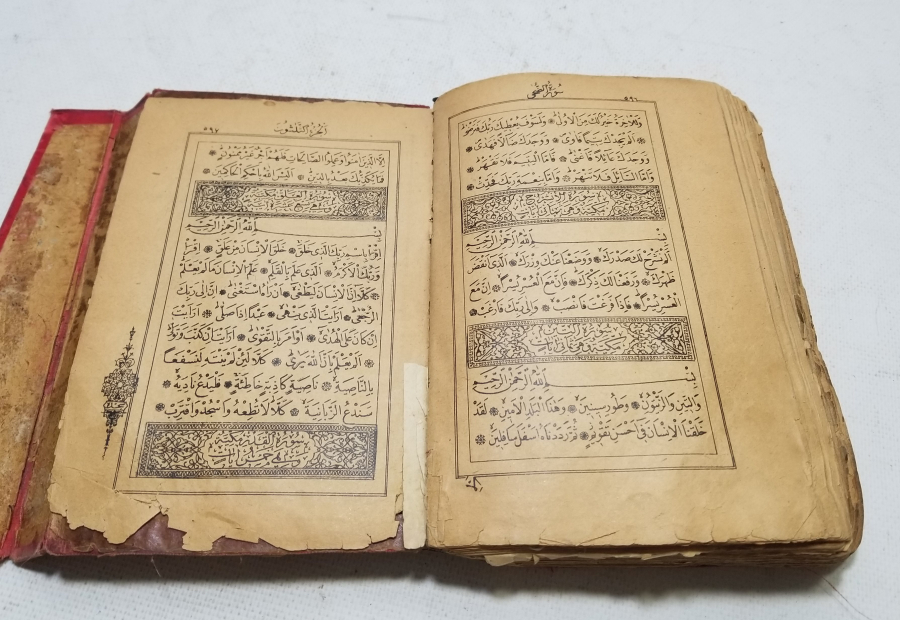 سُورَةُ الضُّحٰى ٥٩٦
وَلَلْاٰخِرَةُ خَيْرٌ لَكَ مِنَ الْاُولٰى وَلَسَوْفَ يُعْطِيكَ رَبُّكَ فَتَرْضٰى
اَلَمْ يَجِدْكَ يَتِيمًا فَاٰوٰى وَوَجَدَكَ ضَالًّا فَهَدٰى
وَوَجَدَكَ عَائِلًا فَاَغْنٰى فَاَمَّا الْيَتِيمَ فَلَا تَقْهَرْ
وَاَمَّا السَّائِلَ فَلَا تَنْهَرْ وَاَمَّا بِنِعْمَةِ رَبِّكَ فَحَدِّثْ
سُورَةُ
بِسْمِ اللّٰهِ الرَّحْمٰنِ الرَّحِيمِ
اَلَمْ نَشْرَحْ لَكَ صَدْرَكَ وَوَضَعْنَا عَنْكَ وِزْرَكَ اَلَّذِى اَنْقَضَ
ظَهْرَكَ وَرَفَعْنَا لَكَ ذِكْرَكَ فَاِنَّ مَعَ الْعُسْرِ يُسْرًا اِنَّ مَعَ
الْعُسْرِ يُسْرًا فَاِذَا فَرَغْتَ فَانْصَبْ وَاِلٰى رَبِّكَ فَارْغَبْ
سُورَةُ التِّينِ
مَكِّيَّةٌ وَهِىَ ثَمَانِ اٰيَاتٍ
بِسْمِ اللّٰهِ الرَّحْمٰنِ الرَّحِيمِ
وَالتِّينِ وَالزَّيْتُونِ وَطُورِ سِينِينَ وَهٰذَا الْبَلَدِ الْاَمِينِ لَقَدْ
خَلَقْنَا الْاِنْسَانَ فِى اَحْسَنِ تَقْوِيمٍ ثُمَّ رَدَدْنَاهُ اَسْفَلَ سَافِلِينَ
اَلْجُزْءُ الثَّلٰثُونَ ٥٩٧
اِلَّا الَّذِينَ اٰمَنُوا وَعَمِلُوا الصَّالِحَاتِ فَلَهُمْ اَجْرٌ غَيْرُ مَمْنُونٍ
فَمَا يُكَذِّبُكَ بَعْدُ بِالدِّينِ اَلَيْسَ اللّٰهُ بِاَحْكَمِ الْحَاكِمِينَ
سُورَةُ الْعَلَقِ مَكِّيَّةٌ
بِسْمِ اللّٰهِ الرَّحْمٰنِ الرَّحِيمِ
اِقْرَأْ بِاسْمِ رَبِّكَ الَّذِى خَلَقَ خَلَقَ الْاِنْسَانَ مِنْ عَلَقٍ اِقْرَأْ
وَرَبُّكَ الْاَكْرَمُ اَلَّذِى عَلَّمَ بِالْقَلَمِ عَلَّمَ الْاِنْسَانَ مَا لَمْ يَعْلَمْ
كَلَّا اِنَّ الْاِنْسَانَ لَيَطْغٰى اَنْ رَاٰهُ اسْتَغْنٰى اِنَّ اِلٰى رَبِّكَ
الرُّجْعٰى اَرَاَيْتَ الَّذِى يَنْهٰى عَبْدًا اِذَا صَلّٰى اَرَاَيْتَ
اِنْ كَانَ عَلَى الْهُدٰى اَوْ اَمَرَ بِالتَّقْوٰى اَرَاَيْتَ اِنْ كَذَّبَ وَتَوَلّٰى
اَلَمْ يَعْلَمْ بِاَنَّ اللّٰهَ يَرٰى كَلَّا لَئِنْ لَمْ يَنْتَهِ لَنَسْفَعًا
بِالنَّاصِيَةِ نَاصِيَةٍ كَاذِبَةٍ خَاطِئَةٍ فَلْيَدْعُ نَادِيَهُ
سَنَدْعُ الزَّبَانِيَةَ كَلَّا لَا تُطِعْهُ وَاسْجُدْ وَاقْتَرِبْ
سُورَةُ الْقَدْرِ مَكِّيَّةٌ
وَهِىَ خَمْسُ اٰيَاتٍ